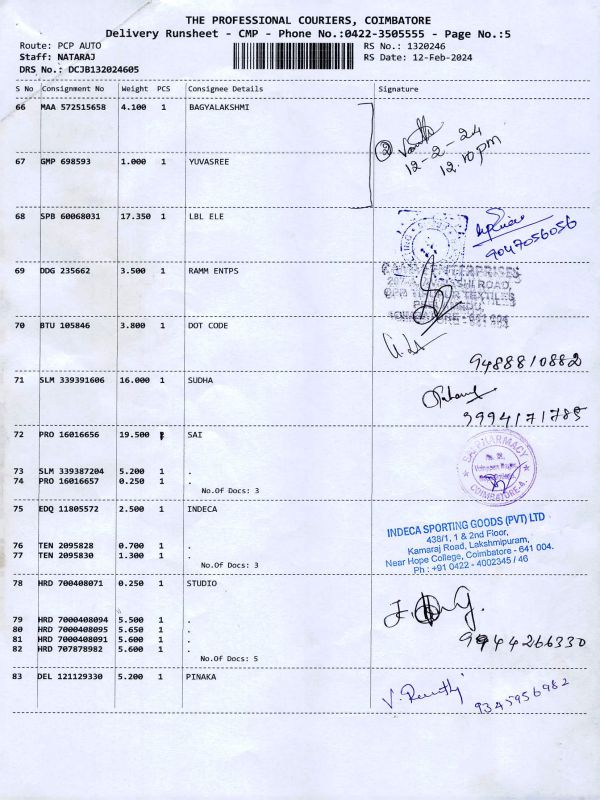 THE PROFESSIONAL COURIERS, COIMBATORE
Delivery Runsheet - CMP - Phone No.:0422-3505555 - Page No.:5
Route: PCP AUTO
RS No.: 1320246
Staff: NATARAJ
RS Date: 12-Feb-2024
DRS No.: DCJB132024605
S No Consignment No Weight PCS Consignee Details Signature
66 MAA 572515658 4.100 1 BAGYALAKSHMI
2
12-2-24
12.10pm
67 GMP 698593 1.000 1 YUVASREE
68 SPB 60068031 17.350 1 LBL ELE
9047056056
69 DDG 235662 3.500 1 RAMM ENTPS
ENTERPRISES
ROAD,
TEXTILES
70 BTU 105846 3.800 1 DOT CODE
9488810882
71 SLM 339391606 16.000 1 SUDHA
9994171785
72 PRO 16016656 19.500 1 SAI
PHARMACY
COIMBATORE-4.
73 SLM 339387204 5.200 1 .
74 PRO 16016657 0.250 1 .
No.Of Docs: 3
75 EDQ 11805572 2.500 1 INDECA
INDECA SPORTING GOODS (PVT) LTD
438/1, 1 & 2nd Floor,
Kamaraj Road, Lakshmipuram,
Near Hope College, Coimbatore - 641 004.
Ph : +91 0422 - 4002345 / 46
76 TEN 2095828 0.700 1 .
77 TEN 2095830 1.300 1 .
No.Of Docs: 3
78 HRD 700408071 0.250 1 STUDIO
79 HRD 7000408094 5.500 1 .
80 HRD 7000408095 5.650 1 .
81 HRD 7000408091 5.600 1 .
82 HRD 707878982 5.600 1 .
9944266330
No.Of Docs: 5
83 DEL 121129330 5.200 1 PINAKA
9345956982